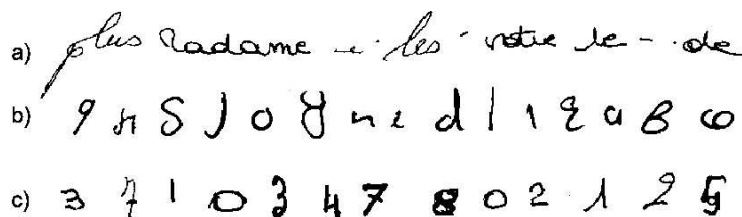 a) plus Madame les notre le de
b) 9 n S J o y n e d l 1 a B
c) 3 7 1 0 3 4 7 8 0 2 1 2 5